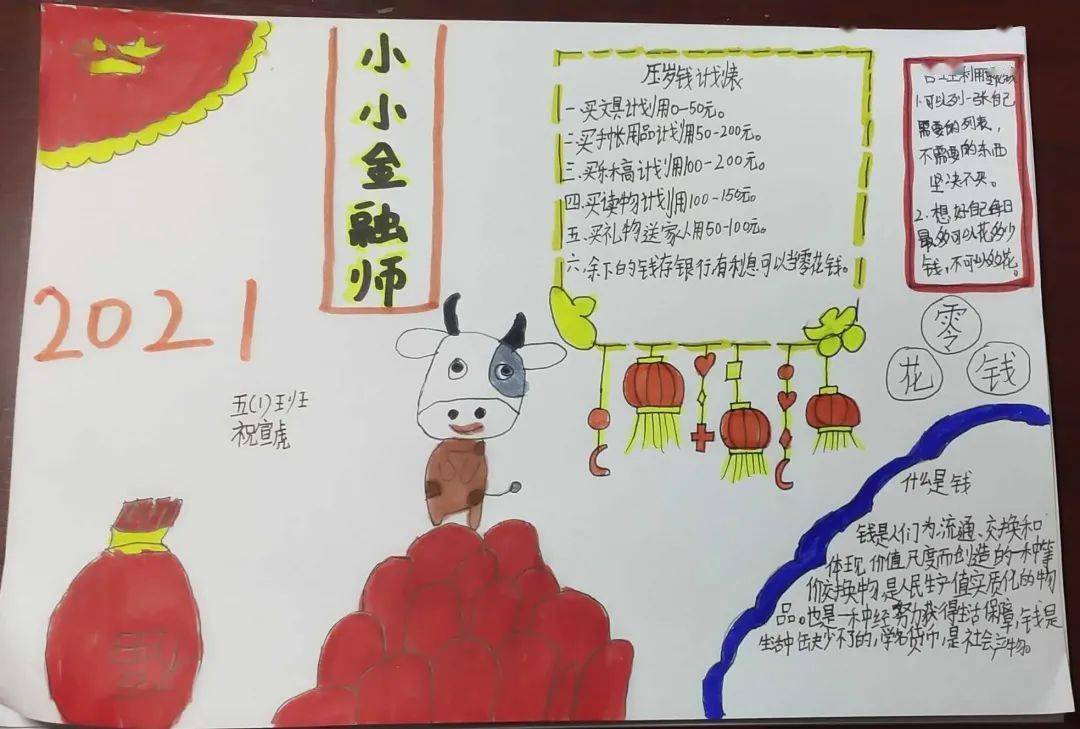 小小金融师
2021
五(1)班
祝宣虎
压岁钱计划表
一、买文具计划用0-50元。
二、买手帐用品计划用50-200元。
三、买乐高计划用100-200元。
四、买读物计划用100-150元。
五、买礼物送家人用50-100元。
六、余下的钱存银行,有利息可以当零花钱。
利用
1.可以列一张自己
需要的列表,
不需要的东西
坚决不买。
2.想好自己每日
最多可以花多少
钱,不可以多花。
零
花 钱
什么是钱
钱是人们为流通、交换和
体现价值尺度而创造的一种等
价交换物,是人民生产值实质化的物
品。也是一种经努力获得生活保障,钱是
生活中缺少不了的,学名货币,是社会产物。